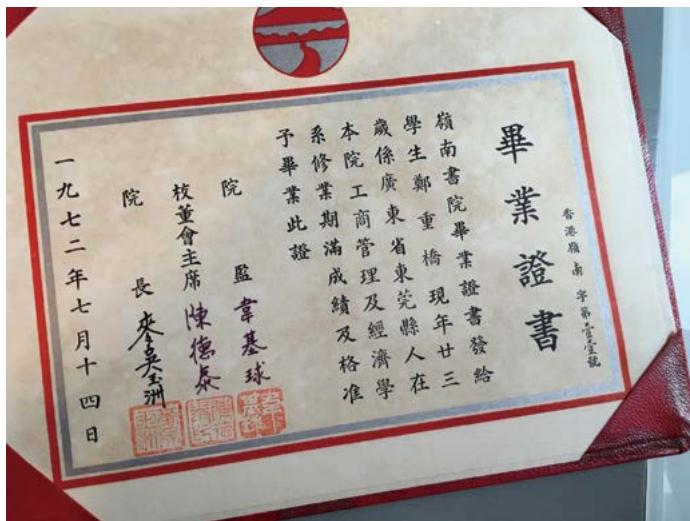 畢業證書
香港嶺南字第壹壹號
嶺南書院畢業證書發給
學生鄭重橋現年廿三
歲係廣東省東莞縣人在
本院工商管理及經濟學
系修業期滿成績及格准
予畢業此證
院監 韋基球
校董會主席 陳德泰
院長 麥吳玉洲
一九七二年七月十四日